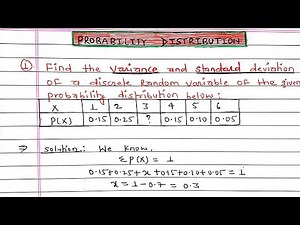 PROBABILITY DISTRIBUTION
① Find the variance and standard deviation
of a discrete Random variable of the given
probability distribution below:
X 1 2 3 4 5 6
P(X) 0.15 0.25 ? 0.15 0.10 0.05
⇒ solution: We know,
ΣP(X) = 1
0.15+0.25+x+0.15+0.10+0.05 = 1
x = 1-0.7 = 0.3